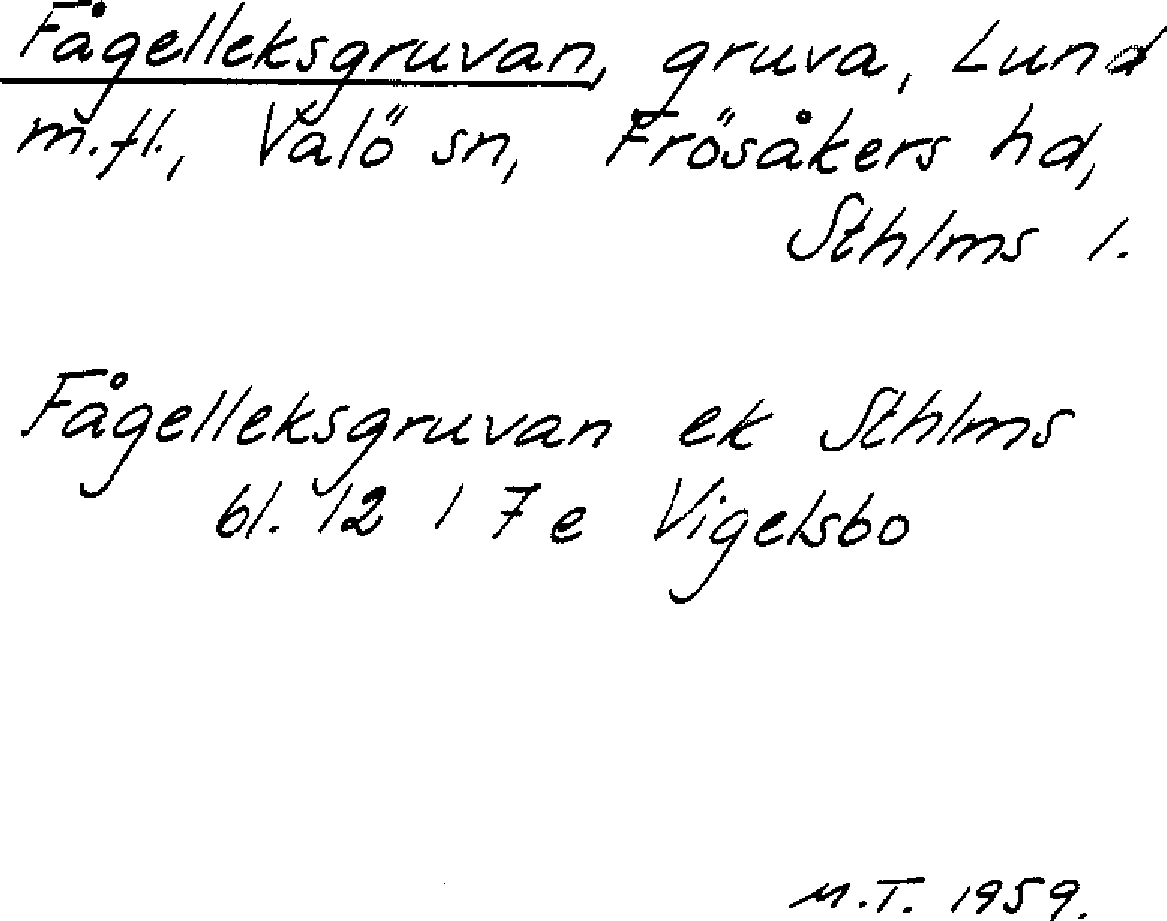 Fågelleksgruvan, gruva, Lund
m.fl., Valö sn, Frösåkers hd,
Sthlms l.
Fågelleksgruvan ek Sthlms
bl. 12 I 7e Vigelsbo
M.T. 1959.